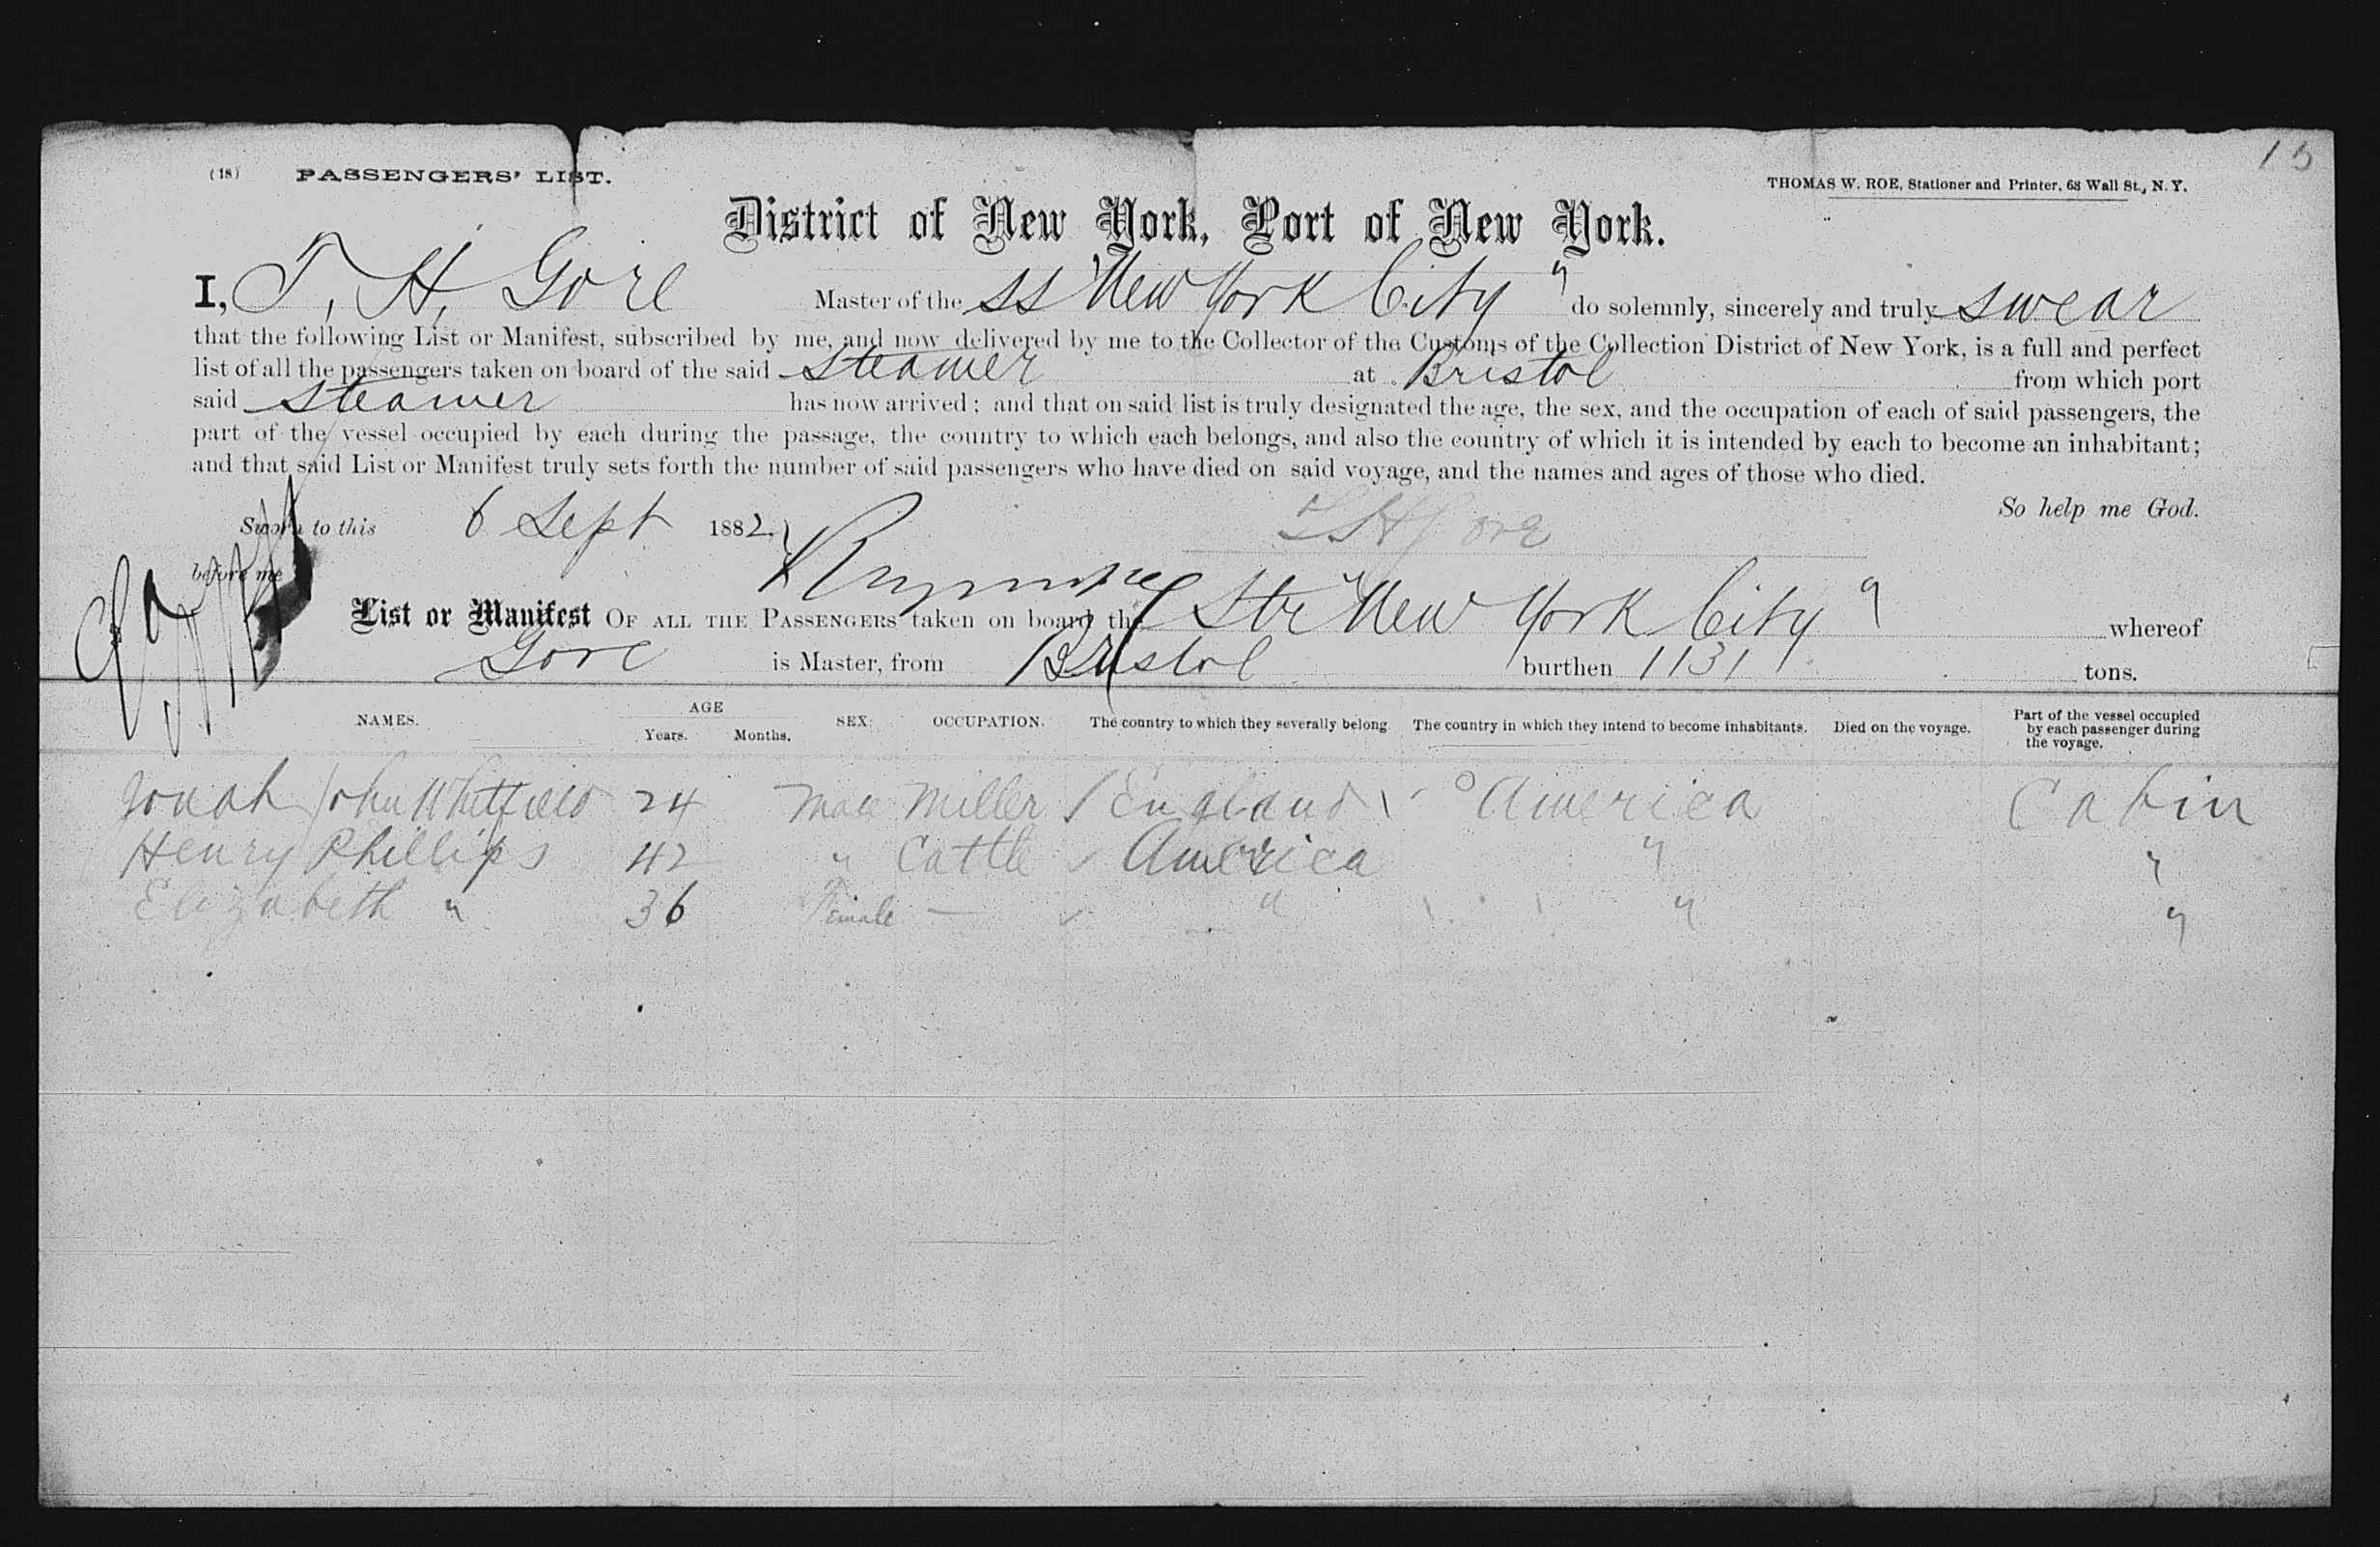 15
(18) PASSENGERS' LIST.
THOMAS W. ROE, Stationer and Printer, 68 Wall St., N. Y.
District of New York, Port of New York.
I, T. H. Gore Master of the SS "New York City" do solemnly, sincerely and truly swear
that the following List or Manifest, subscribed by me, and now delivered by me to the Collector of the Customs of the Collection District of New York, is a full and perfect
list of all the passengers taken on board of the said Steamer at Bristol from which port
said Steamer has now arrived; and that on said list is truly designated the age, the sex, and the occupation of each of said passengers, the
part of the vessel occupied by each during the passage, the country to which each belongs, and also the country of which it is intended by each to become an inhabitant;
and that said List or Manifest truly sets forth the number of said passengers who have died on said voyage, and the names and ages of those who died.
So help me God.
Sworn to this 6 Sept 1882. T H Gore
before me
List or Manifest OF ALL THE PASSENGERS taken on board the Str "New York City" whereof
Gore is Master, from Bristol burthen 1131 tons.
NAMES. AGE Years. Months. SEX. OCCUPATION. The country to which they severally belong. The country in which they intend to become inhabitants. Died on the voyage. Part of the vessel occupied by each passenger during the voyage.
Jonah John Whitfield 24 Male Miller England America Cabin
Henry Phillips 42 " Cattle America " "
Elizabeth " 36 Female — " " "